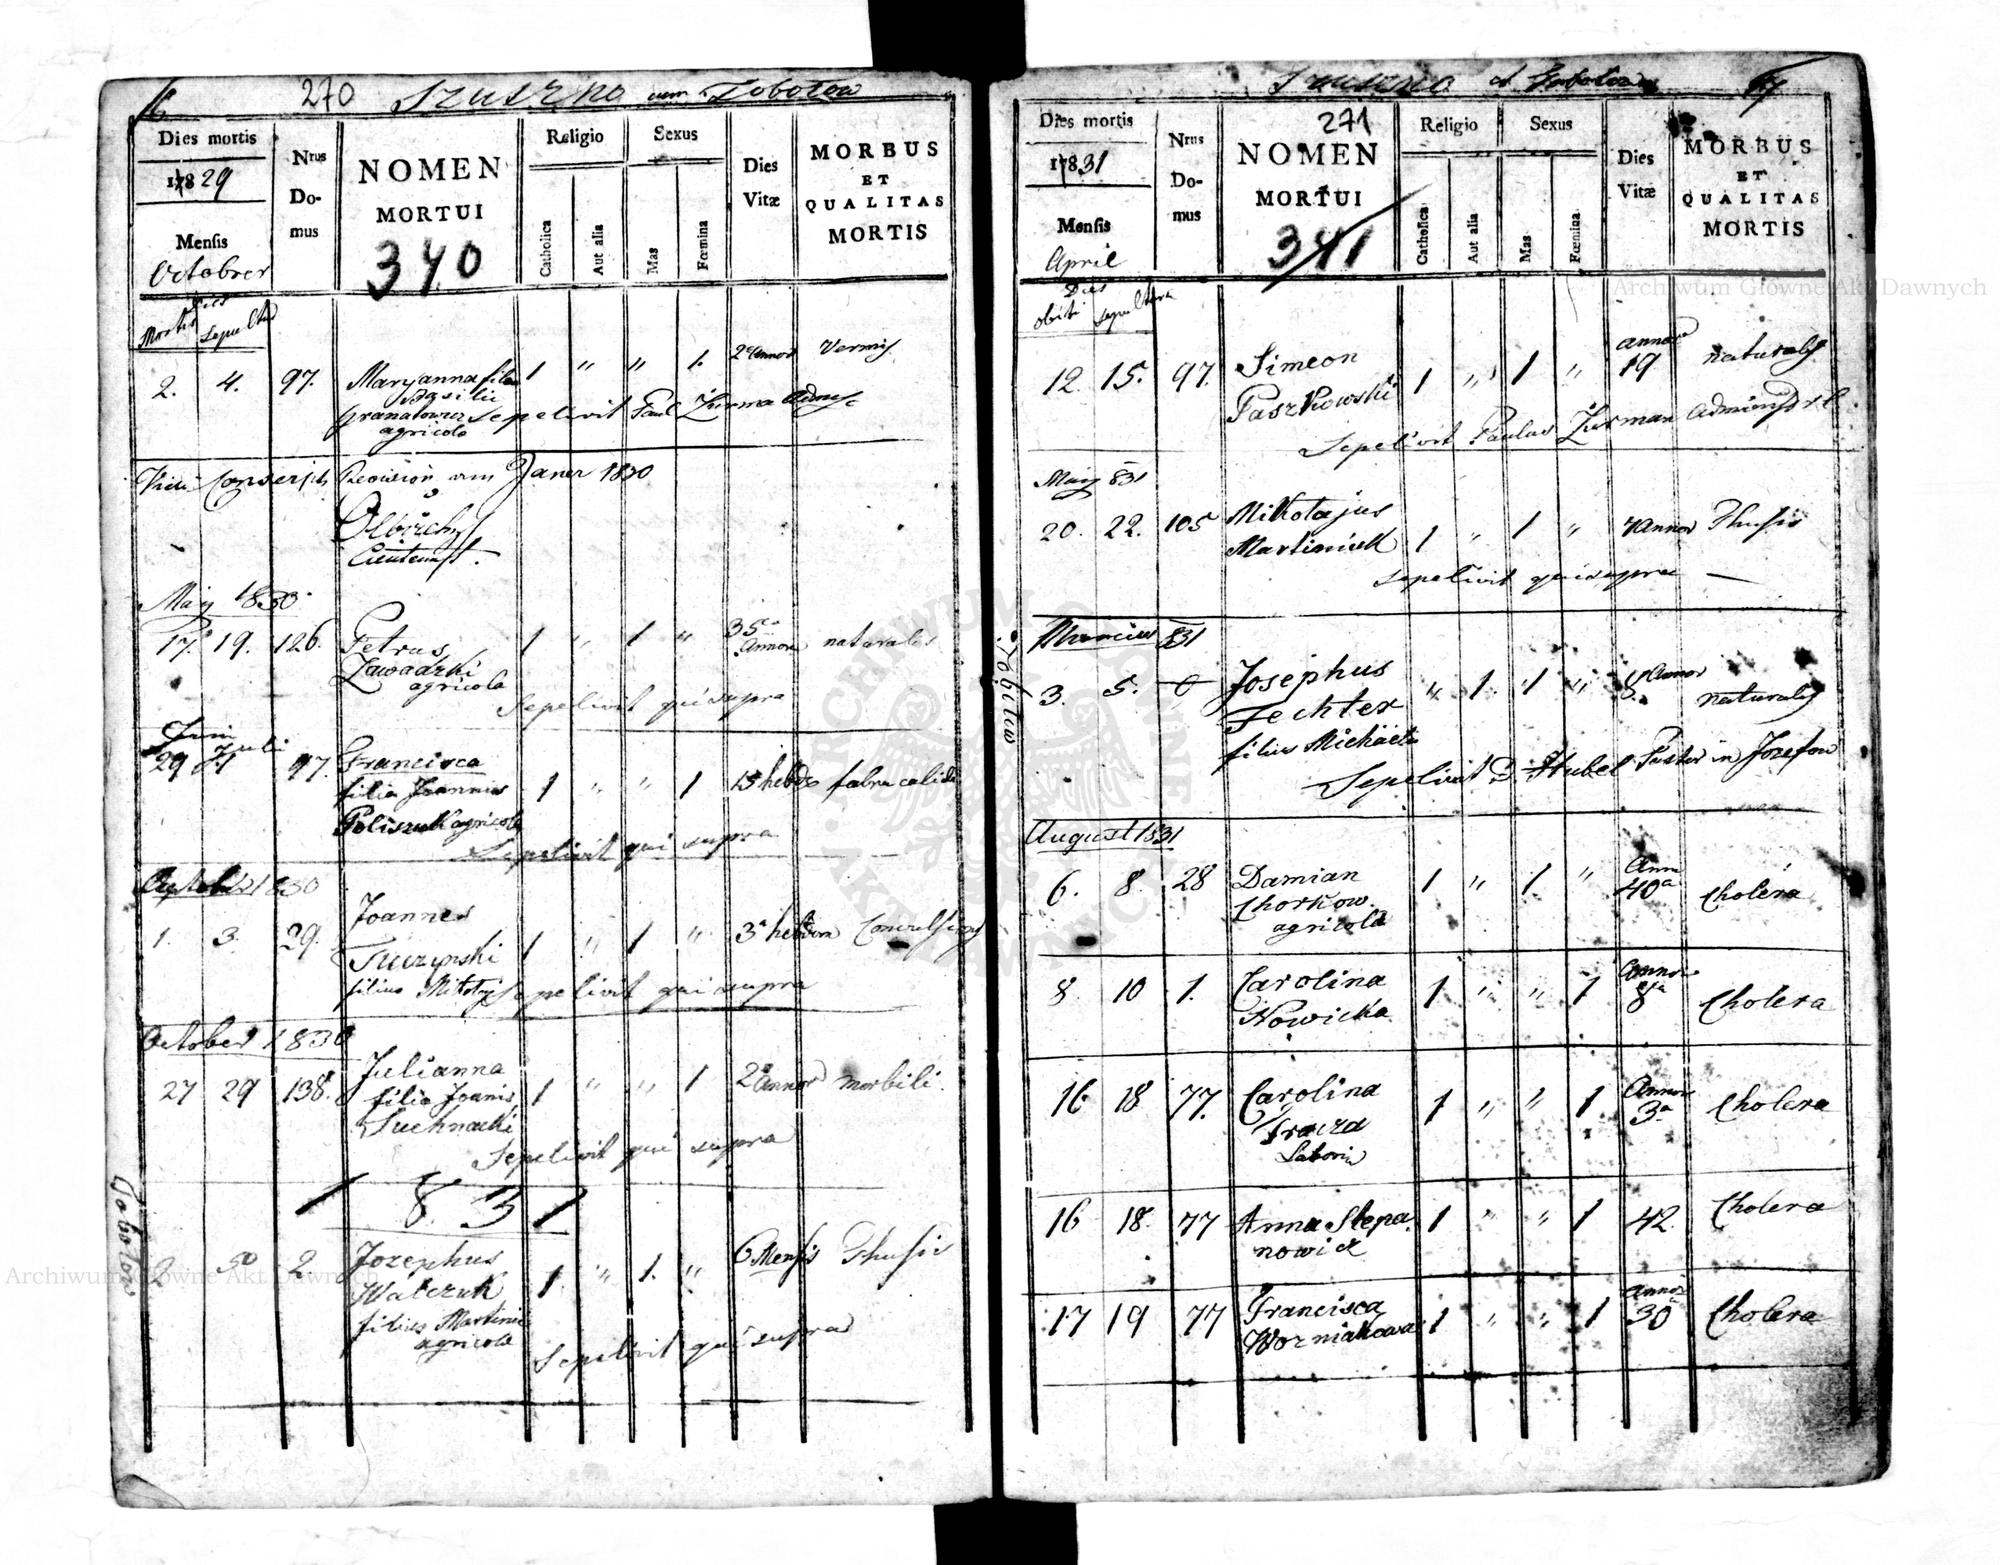 270 Szuszno cum Tobotow
Dies mortis
1829
Mensis
Octobrer
Nrus Domus
NOMEN
MORTUI
340
Religio
Catholica
Aut alia
Sexus
Mas
Fœmina
Dies Vitæ
MORBUS
ET
QUALITAS
MORTIS
Dies
Mortis Sepultu
2. 4. 97. Maryanna filia 1 " " 1. 2 Annor Vermis
Basilii
Granatowicz Sepelivit Paul Zurman
agricola
Conscript Revision am Janer 1830
May 1830
17. 19. 126. Petrus 1 " 1 " 35 Annor naturalis
Zawadzki
agricola
Sepelivit qui supra
Juni Juli
29 97. Francisca
filia Joannis 1 " " 1 15 hebdo febra calida
Poliszuk agricola
Sepelivit qui supra
1830
1. 3. 29. Joannes 1 " 1 " 3 hebdom Convulsiones
Tuczynski
filius Mikołaj Sepelivit qui supra
October 1830
27 29 138. Julianna 1 " " 1 2 Annor morbili
filia Joanis
Suchnacki
Sepelivit qui supra
1831
2 2 Jozephus 1 " 1. " 6 Mensis Thusis
Walczuk
filius Martini
agricola
Sepelivit qui supra
Tobotow
et
Dies mortis
1831
Mensis
April
Nrus Domus
271
NOMEN
MORTUI
341
Religio
Catholica
Aut alia
Sexus
Mas
Fœmina
Dies Vitæ
MORBUS
ET
QUALITAS
MORTIS
Dies
obiti sepultura
12. 15. 97. Simeon 1 " 1 " annor 19 naturalis
Paszkowski
Sepelivit Paulus Zurman
May 831
20. 22. 105 Mikołajus
Martiniuk 1 " 1 " Annor Thusis
Sepelivit qui supra
Tobotow
Marcius 831
3. 5. 0 Josephus " 1 1 " Annor naturalis
Fechter
filius Michaeli
Sepelivit D. Hubel Pastor in Jozefow
August 1831
6. 8. 28 Damian 1 " 1 " Ann 40 Cholera
Chorkow.
agricola
8 10 1. Carolina 1 " " 1 Annor 8 Cholera
Nowicka
16 18 77. Carolina 1 " " 1 Annor 3 Cholera
16 18. 77 Anna Stepa 1 " " 1 42. Cholera
nowicz
17 19 77 Francisca 1 " " 1 Annor 30 Cholera
Wozniakowa
Archiwum Główne Akt Dawnych
Archiwum Główne Akt Dawnych
ARCHIWUM GŁÓWNE AKT DAWNYCH